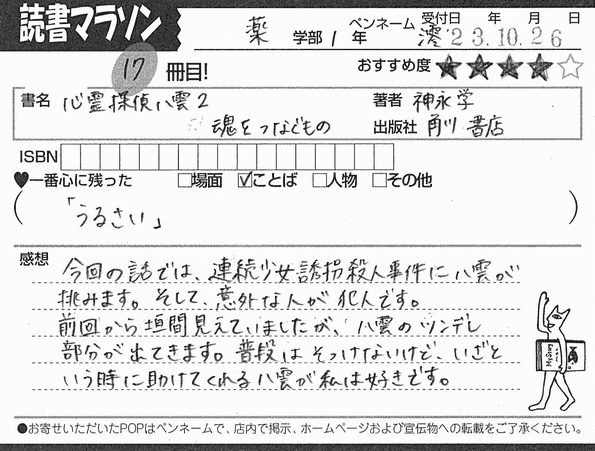 読書マラソン
薬 学部 1 年 ペンネーム 澪 受付日 年 月 日 '23.10.26
17 冊目! おすすめ度 ★★★★☆
書名 心霊探偵八雲2 著者 神永学
魂をつなぐもの 出版社 角川書店
ISBN
♥一番心に残った □場面 ☑ことば □人物 □その他
(「うるさい」)
感想
今回の話では、連続少女誘拐殺人事件に八雲が
挑みます。そして、意外な人が犯人です。
前回から垣間見えていましたが、八雲のツンデレ
部分が出てきます。普段はそっけないけど、いざと
いう時に助けてくれる八雲が私は好きです。
●お寄せいただいたPOPはペンネームで、店内で掲示、ホームページおよび宣伝物への転載をご了承ください。